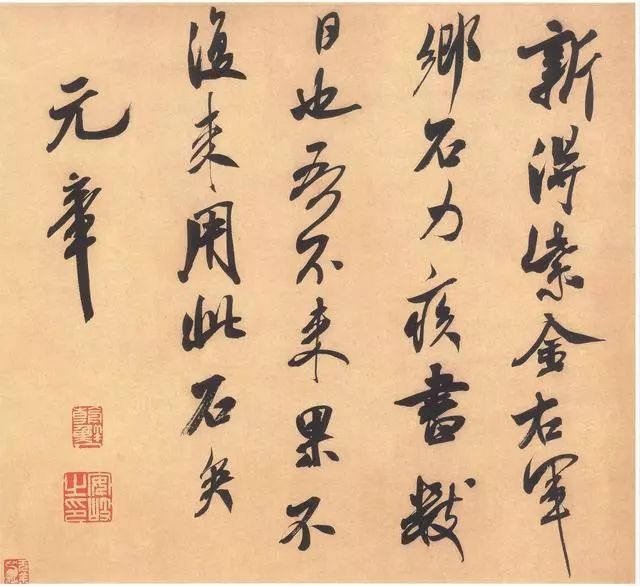 新得紫金右軍
鄉石力疾書數
日也吾不来果不
復来用此石矣
元章
安岐之印